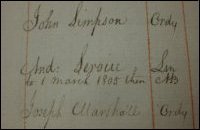 John Simpson Ordy
And: Lin
to 1 March 1805 then AB
Joseph Marshall Ordy